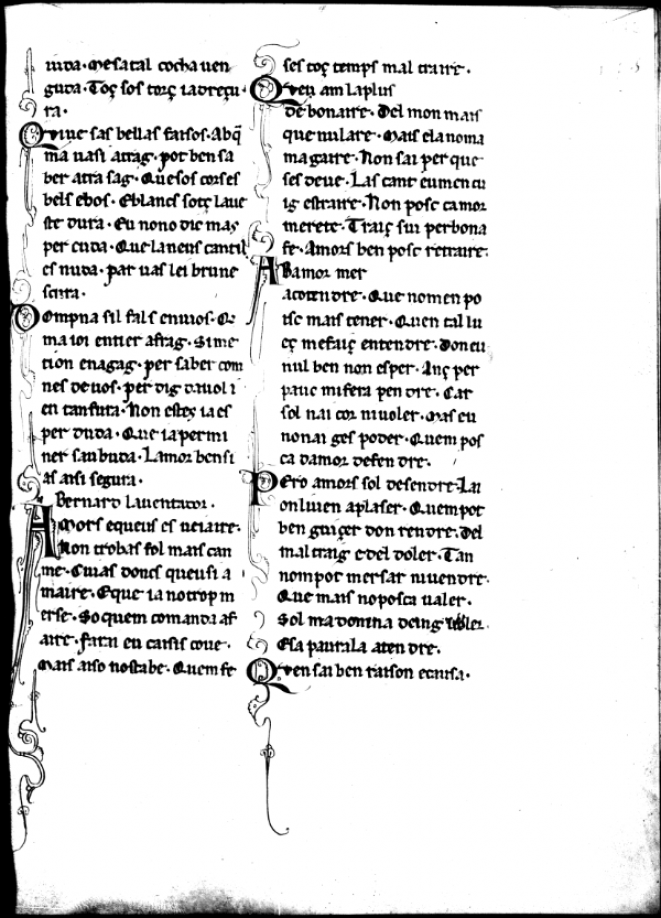 iuda · Mesaral cocha uen
guda · Toç sos torç iadreçu ·
ra ·
Qviue sas bellas faisos · Abq̃
ma uasi atrag · pot ben sa
ber atra sag · Que sos cors es
bels ebos · Eblancs sotç laue
ste dura · Eu nono dic mas
per cuda · Que la neus cantil
es nuda · par uas lei brune
scura ·
Dompna sil fals enuios · Qe
ma ioi entier afrag · Si me
tion enagag · per saber com
nes de uos · per dig dauol i
en tanfura · Non esteç ia es
per duda · Que ia per mi
ner saubuda · Lamor bensi
as aisi segura ·
Bernard Lauentador ·
Amors equeus es ueiaire ·
Non trobas fol mais can
me · Cuias doncs queusi a
maire · Eque ia notrop m
erse · So quem comanda af
aire · farai en caisis coue ·
Mais aiso nostabe · Quem fe
ses toç temps mal traire ·
Qveu am laplus
de bonaire · Del mon mais
que nulare · Mais ela noma
magaire · Non sai per que
ses deue · Las cant eu men cu
ig estraire · Non posc camor
merete · Traiç sui per bona
fe · Amors ben posc retraire ·
Abamor mer
acotendre · Que nomen po
isc mais tener · Quen tal lu
eç me faiç entendre · Don eu
nul ben non esper · Anç per
pauc mi fera pendre · Car
sol nai cor ni uoler · Mas eu
non ai ges poder · Quem pos
ca damor defendre ·
Pero amors sol desendre · Lai
on li uien aplaser · Quem pot
ben guiçer don rendre · Del
mal traig edel doler · Tan
nom pot mersar ni uendre ·
Que mais no posca ualer ·
Sol ma donna deing uoler ·
Esa paurala atendre ·
Qven sai ben raison ecausa ·